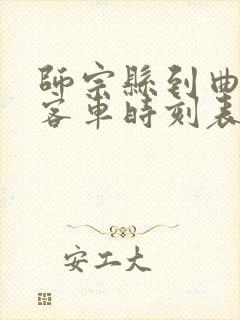 師宗縣到曲
客車時刻表
安工大